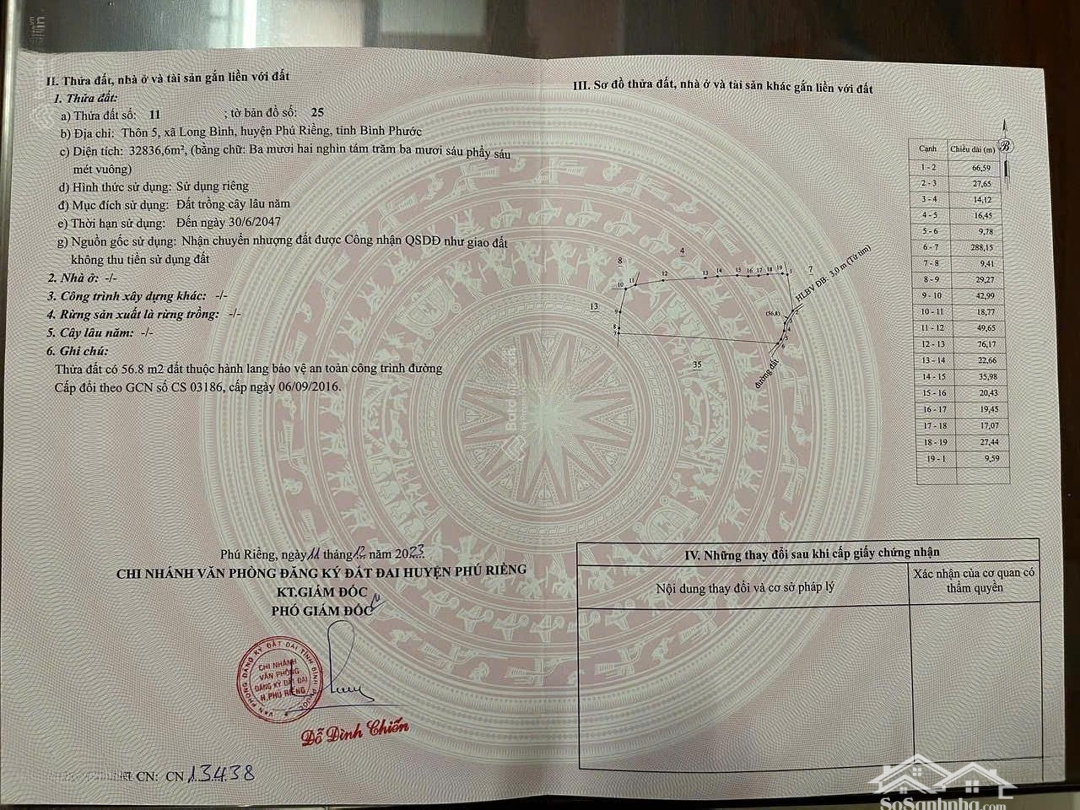 II. Thửa đất, nhà ở và tài sản gắn liền với đất
1. Thửa đất:
a) Thửa đất số: 11 ; tờ bản đồ số: 25
b) Địa chỉ: Thôn 5, xã Long Bình, huyện Phú Riềng, tỉnh Bình Phước
c) Diện tích: 32836,6m², (bằng chữ: Ba mươi hai nghìn tám trăm ba mươi sáu phẩy sáu
mét vuông)
d) Hình thức sử dụng: Sử dụng riêng
đ) Mục đích sử dụng: Đất trồng cây lâu năm
e) Thời hạn sử dụng: Đến ngày 30/6/2047
g) Nguồn gốc sử dụng: Nhận chuyển nhượng đất được Công nhận QSDĐ như giao đất
không thu tiền sử dụng đất
2. Nhà ở: -/-
3. Công trình xây dựng khác: -/-
4. Rừng sản xuất là rừng trồng: -/-
5. Cây lâu năm: -/-
6. Ghi chú:
Thửa đất có 56.8 m2 đất thuộc hành lang bảo vệ an toàn công trình đường
Cấp đổi theo GCN số CS 03186, cấp ngày 06/09/2016.
Phú Riềng, ngày 11 tháng 12 năm 2023
CHI NHÁNH VĂN PHÒNG ĐĂNG KÝ ĐẤT ĐAI HUYỆN PHÚ RIỀNG
KT.GIÁM ĐỐC
PHÓ GIÁM ĐỐC
VĂN PHÒNG ĐĂNG KÝ ĐẤT ĐAI TỈNH BÌNH PHƯỚC
CHI NHÁNH
VĂN PHÒNG
ĐĂNG KÝ ĐẤT ĐAI
H.PHÚ RIỀNG
Đỗ Đình Chiến
CN: CN 13438
III. Sơ đồ thửa đất, nhà ở và tài sản khác gắn liền với đất
B
Cạnh Chiều dài (m)
1 - 2 66,59
2 - 3 27,65
3 - 4 14,12
4 - 5 16,45
5 - 6 9,78
6 - 7 288,15
7 - 8 9,41
8 - 9 29,27
9 - 10 42,99
10 - 11 18,77
11 - 12 49,65
12 - 13 76,17
13 - 14 22,66
14 - 15 35,98
15 - 16 20,43
16 - 17 19,45
17 - 18 17,07
18 - 19 27,44
19 - 1 9,59
4
8
7
10 11 12 13 14 15 16 17 18 19 1
HLBV ĐB: 3,0 m (Từ tim)
13
9
(56.8)
8
7
6
35
đường đất
IV. Những thay đổi sau khi cấp giấy chứng nhận
Nội dung thay đổi và cơ sở pháp lý
Xác nhận của cơ quan có
thẩm quyền
SoSanhnha.com